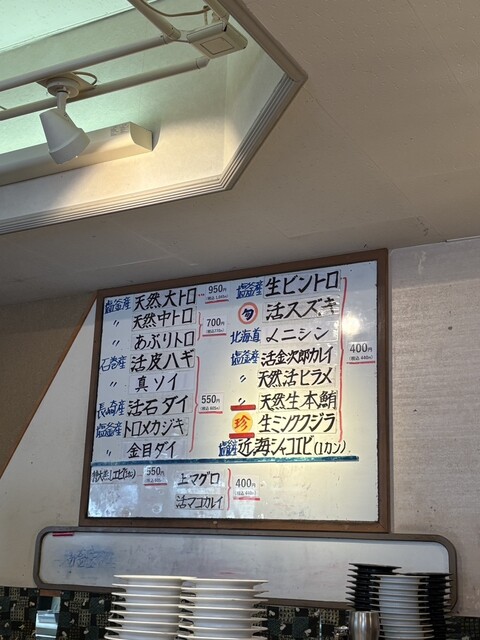 塩釜産 天然大トロ 950円 (税込1,045円)
〃 天然中トロ
〃 あぶりトロ
700円 (税込770円)
石巻産 活皮ハギ
〃 真ソイ
長崎産 活石ダイ
塩釜産 トロメカジキ
〃 金目ダイ
550円 (税込605円)
塩釜産 生ビントロ
旬 活スズキ
北海道 〆ニシン
塩釜産 活金次郎カレイ
〃 天然活ヒラメ
〃 天然生本鮪
珍 生ミンククジラ
塩釜産 近海シャコエビ(1カン)
400円 (税込440円)
550円
上マグロ
活マコカレイ
400円 (税込440円)